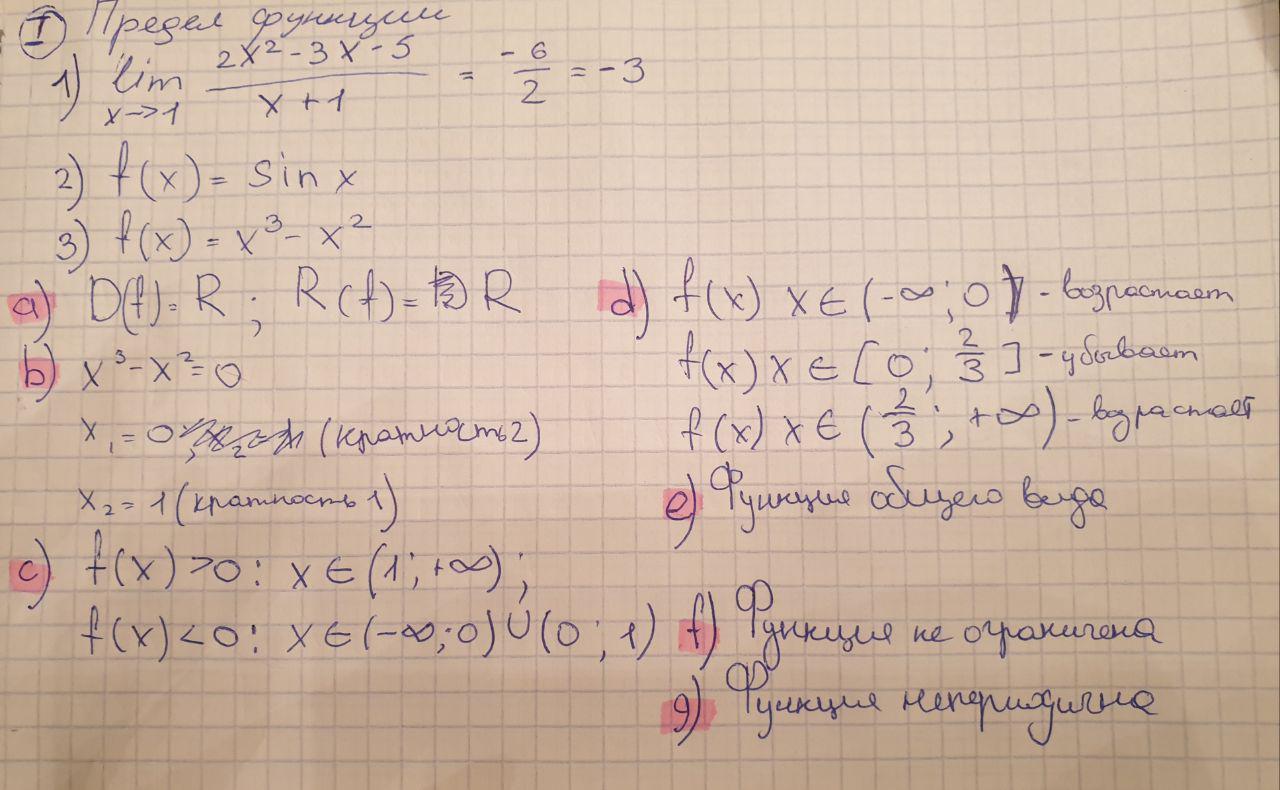 I Предел функции
1) lim x→1 (2x² - 3x - 5)/(x + 1) = -6/2 = -3
2) f(x) = sin x
3) f(x) = x³ - x²
a) D(f) = R ; R(f) = R
b) x³ - x² = 0
x₁ = 0 (кратность 2)
x₂ = 1 (кратность 1)
c) f(x) > 0 : x ∈ (1 ; +∞) ;
f(x) < 0 : x ∈ (-∞ ; 0) ∪ (0 ; 1)
d) f(x) x ∈ (-∞ ; 0) - возрастает
f(x) x ∈ [0 ; 2/3] - убывает
f(x) x ∈ (2/3 ; +∞) - возрастает
e) Функция общего вида
f) Функция не ограничена
g) Функция непериодична